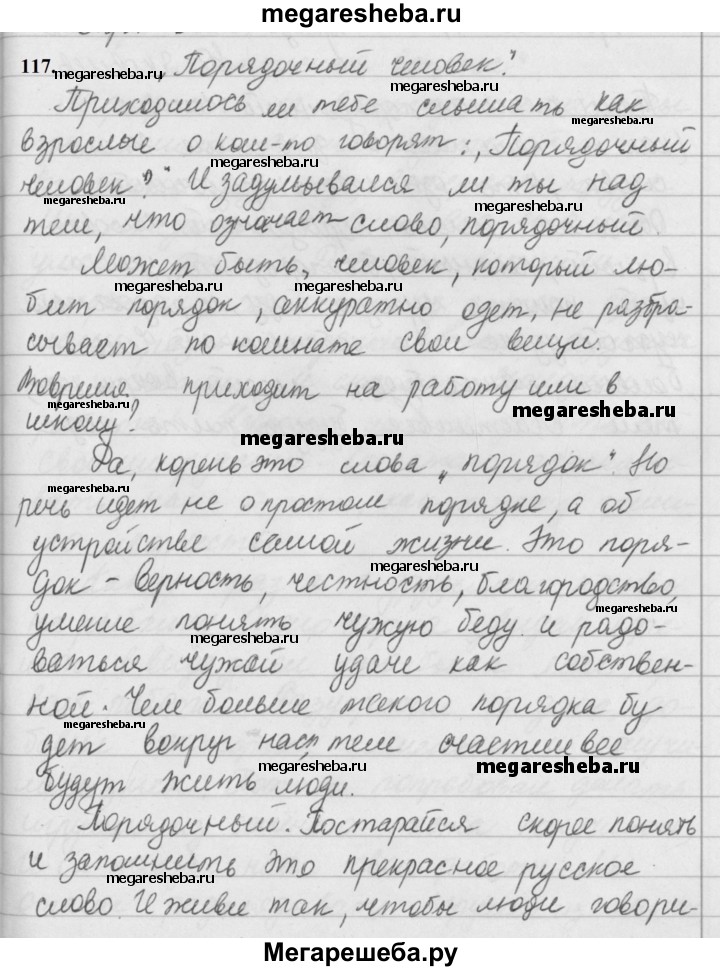 megaresheba.ru
117. „Порядочный человек".
megaresheba.ru
megaresheba.ru
Приходилось ли тебе слышать как
megaresheba.ru
взрослые о ком-то говорят: „Порядочный
megaresheba.ru
человек?" И задумывался ли ты над
megaresheba.ru
megaresheba.ru
тем, что означает слово, порядочный.
Может быть, человек, который лю-
megaresheba.ru
megaresheba.ru
бит порядок, аккуратно одет, не разбра-
сывает по комнате свои вещи.
Вовремя приходит на работу или в
megaresheba.ru
megaresheba.ru
школу?
megaresheba.ru
Да, корень это слова „порядок". Но
megaresheba.ru
речь идет не о простом порядке, а об
устройстве самой жизни. Это поря-
megaresheba.ru
док - верность, честность, благородство,
megaresheba.ru
умение понять чужую беду и радо-
megaresheba.ru
ваться чужой удаче как собствен-
ной. Чем больше такого порядка бу
megaresheba.ru
дет вокруг нас тем счастливее
megaresheba.ru
megaresheba.ru
будут жить люди.
Порядочный. Постарайся скорее понять
megaresheba.ru
и запомнить это прекрасное русское
megaresheba.ru
слово. И живи так, чтобы люди говори-
megaresheba.ru
Мегарешеба.ру